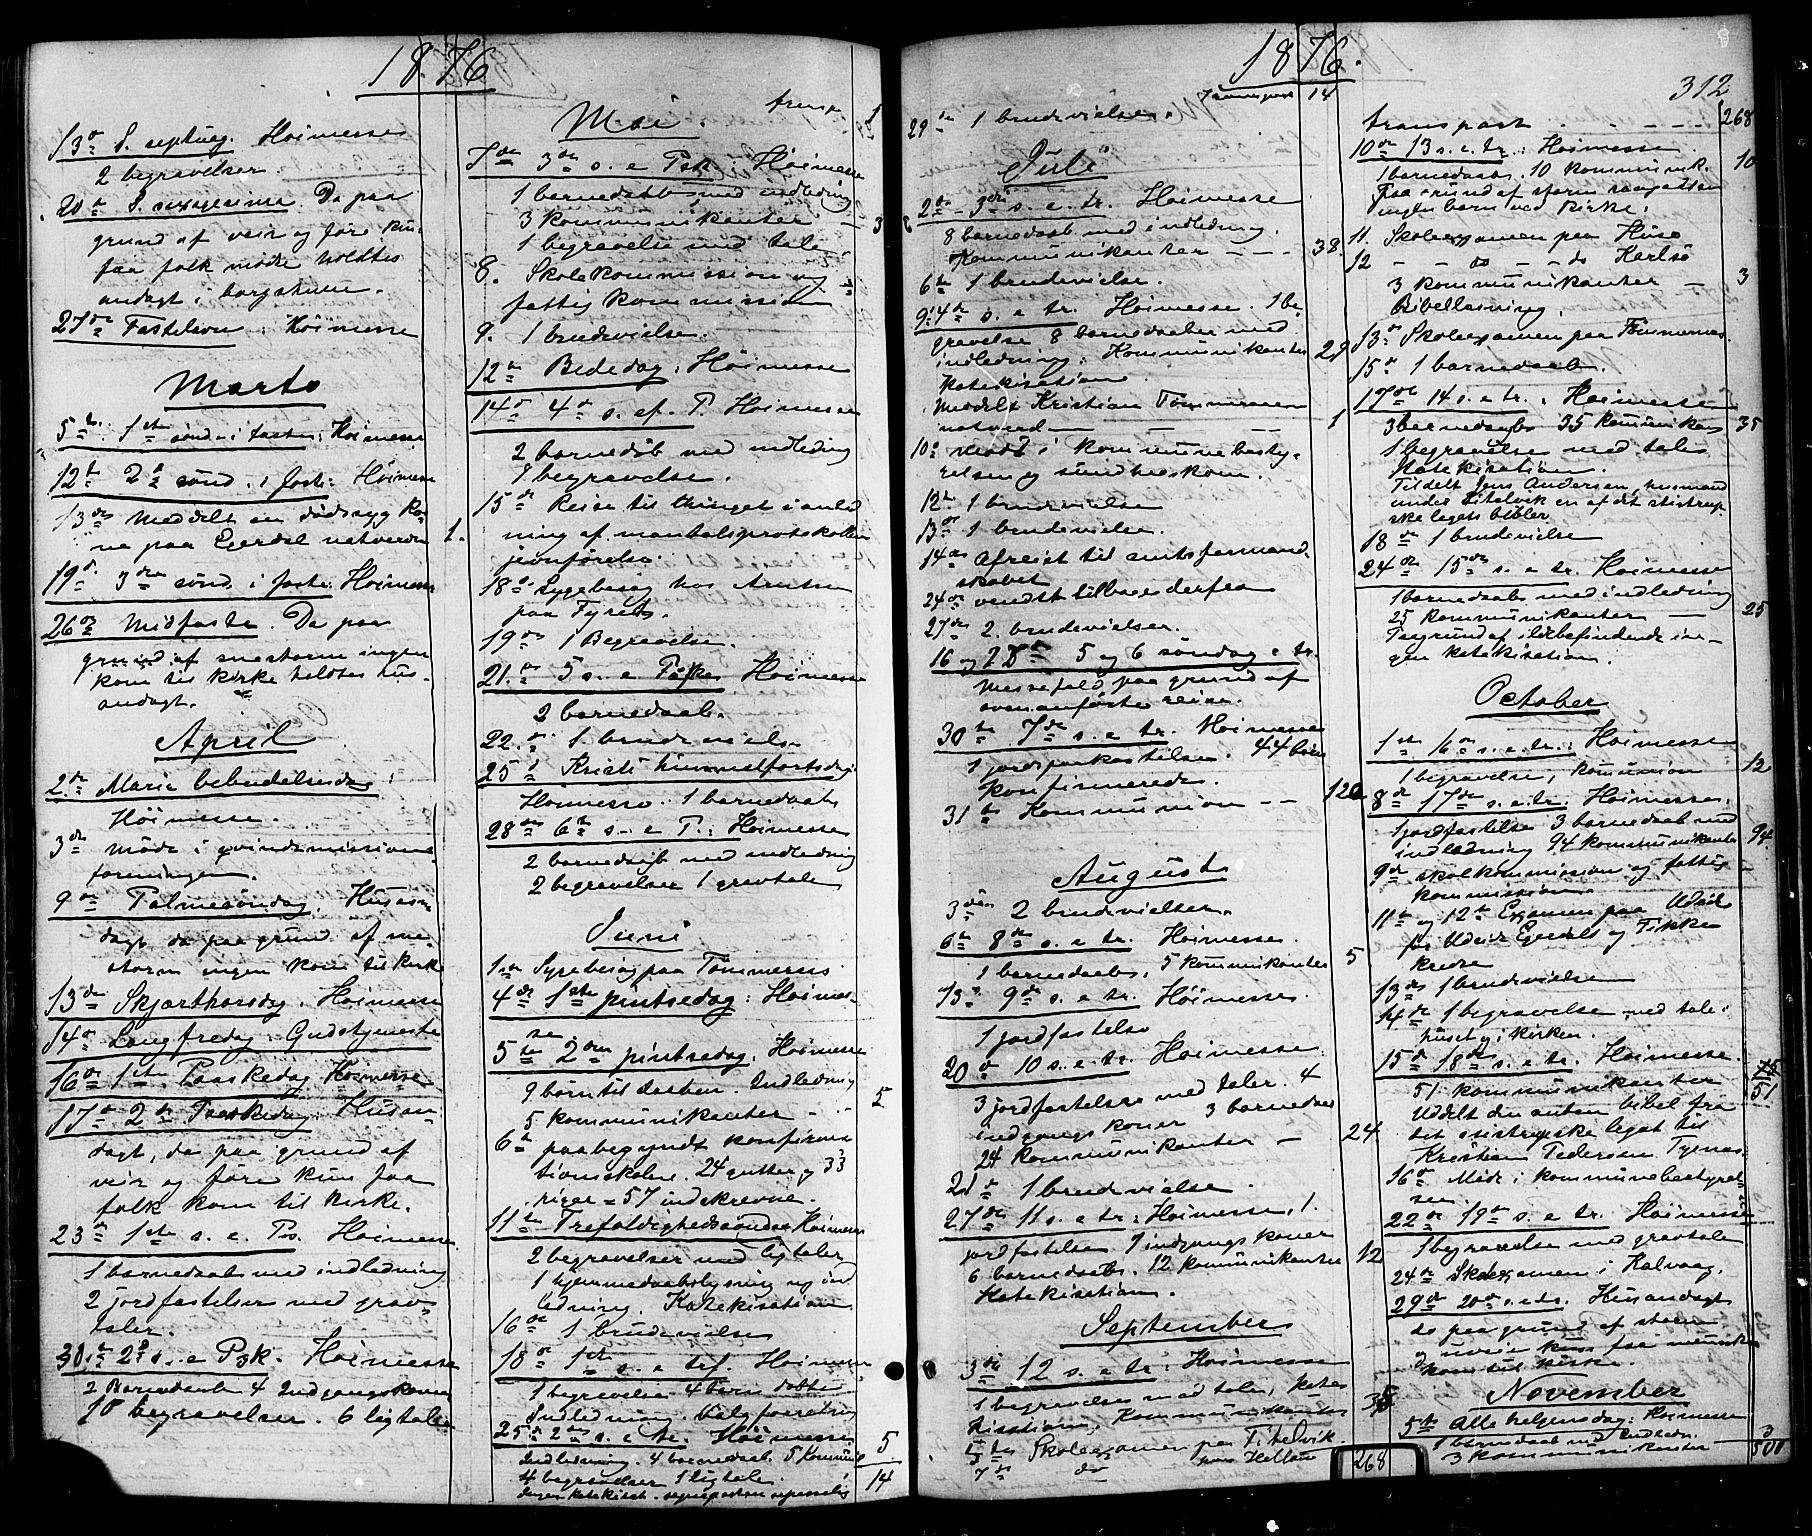 1876
13de S. septuag. Høimesse
2 begravelser.
20de S. sexagesima. Da paa
grund af veir og føre kun
faa folk mødte holdtes
andagt i borgstuen.
27de Fastelavn. Høimesse
Marts
5te 1ste sønd. i faste: Høimesse
12te 2den sønd. i faste: Høimesse
13de Meddelt en dødssyg Ko-
ne paa Gjerdal natverden 1.
19de 3die sønd. i faste: Høimesse
26de Midfaste. Da paa
grund af snestorm ingen
kom til kirke holdtes hus-
andagt.
April
2den Maria bebudelsesdag
Høimesse.
3die Møde i qvindemissions-
foreningen.
9de Palmesøndag. Husan-
dagt, da paa grund af
storm ingen kom til kirke
13de Skjærthorsdag. Høimesse
14de Langfredag. Gudstjeneste
16de 1ste Paaskedag Høimesse
17de 2den Paaskedag: Husan-
dagt, da paa grund af
veir og føre kun faa
folk kom til kirke.
23de 1ste s. e. Ps. Høimesse.
1 barnedaab med indledning
2 jordfæstelser med grav-
taler.
30te 2den s. e Psk. Høimesse
2 Barnedaab 4 Indgangskoner
10 begravelser. 6 ligtaler
Mai.
transp. 1
7de 3die s. e Psk. Høimesse
1 barnedaab med indledning
3 kommunikanter — 3
1 begravelse med tale
8. Skolekommission og
fattigkommission
9. 1 brudevielse.
12te Bededag: Høimesse
14de 4de s. ef. P. Høimesse
2 barnedåb med indledning
1 begravelse.
15de Reise til thinget i anled
ning af mantalsprotokollens
jevnførelse.
18de Sygebesøg hos Arntsen
paa Fyret.
19de 1 Begravelse.
21de 5 s. e Påske Høimesse
2 barnedaab.
22de 1 brudevielse
25de Kristi himmelfartsdag
Høimesse. 1 barnedaab
28de 6te s. e P.: Høimesse
2 barnedaab med indledning
2 begravelser 1 gravtale
Juni
1ste Sygebesøg paa Tømmernes
4de 1ste pintsedag: Høimes-
se
5te 2den pintsedag. Høimesse
9 børn til daaben. Indledning
5 kommunikanter - - 5
6te paabegyndt konfirma
tionsskolen. 24 gutter og 33
piger = 57 indskrevne.
11te Trefoldighedssøndag Høimesse
2 begravelser med ligtaler
1 hjemmedaabslysning og ind
ledning. Katekisation
16de 1 brudevielse
18de 1ste s. e tref. Høimesse
1 begravelse 4 børn døbte
Indledning.
25de 2den s. e tr. Høimesse
Indledning. 4 barnedaab. 5 Kommuni 5
4 begravelser 1 ligtale.
14
1876.
312
Transport 14
29de 1 brudevielse.
Juli
2den 3die s. e. tr. Høimesse
8 barnedaab med indledning.
Kommunikanter - - - 38.
6te 1 brudevielse.
9de 4de s. e tr. Høimesse. 1 be-
gravelse 8 barnedaaber med
indledning. Kommunikanter 29
Katekisation.
Meddelt Kristian Tømmernes
natverd — — 1
10de møde i kommunebesty-
relsen og sundhedskom.
12te 1 brudevielse
13de 1 brudevielse.
14de Afreist til amtsformand-
skabet
24de vendt tilbage derfra
27de 2. brudevielser.
16 og 23de 5 og 6 søndag e tr.
Messefald paa grund af
ovenanførte reise.
30te 7de s. e tr. Høimesse
1 jordfæstelse. 44 børn
konfirmerede.
31te Kommunion - - 120
August
3die 2 brudevielser.
6te 8de s. e tr. Høimesse.
1 barnedaab, 5 kommunikanter 5
13de 9de s. e tr. Høimesse.
1 jordfæstelse
20de 10 s. e tr. Høimesse.
3 jordfæstelser med taler. 4
indgangskoner 3 barnedaab
24 kommunikanter — 24
21de 1 brudevielse.
27de 11 s. e tr: Høimesse, 1.
jordfæstelse 1 indgangskoner
6 barnedaab. 12 kommunikanter 12
Katekisation.
September
3die 12 s. e tr: Høimesse
1 begravelse med tale, kate
kisation, Kommunikanter
5te Skoleexamen paa Titelvik.
7de do paa Helland
268
transport - - - - 268
10de 13 s. e. tr.: Høimesse.
1 barnedaab. 10 kommunik. 10
Paa grund af storm saagodtsom
ingen børn ved kirke.
11. Skoleexamen paa Huse
12 - - do - - do Karlsö
3 kommunikanter — 3
Bibellæsning.
13de Skoleexamen paa Tømmernes.
15de 1 barnedaab.
17de 14 s. e tr.: Høimesse
3 barnedaab 35 kommunikan 35
1 begravelse med tale
Katekisation.
Tildelt Jens Andersen, husmand
under Titelvik en af det stistrup-
ske legats bibler.
18de 1 brudevielse
24de 15de s. e tr. Høimesse
1 barnedaab med indledning
25 kommunikanter — 25
Paa grund af ildebefindende in-
gen katekisation.
October
1ste 16de s. e. tr.: Høimesse
1 begravelse, kommunion 12
8de 17de s. e. tr. Høimesse.
1 jordfæstelse 3 barnedaab med
indledning 94 kommunikanter 94.
9de skolekommission og fattig
kommission
11te og 12te Examen paa
for Gjerdal og Fikke
kredse
13de 1 brudevielse
14de 1 begravelse med tale i
huset og i kirken.
15de 18de s. e tr. Høimesse.
51 kommunikanter 51
Uddelt den anden bibel fra
det stistrupske legat til
Kristian Pedersen Tynes.
16de Møde i kommunebestyrel-
sen.
22de 19de s. e tr. Høimesse
1 begravelse med gravtale
24de Skoleexamen i Kalvaag.
29de 20de s. e tr. Husandagt
da paa grund af storm
uveir kun faa mennesker
kom til kirke.
November
5te Alle helgensdag: Høimesse
1 barnedaab med Indledn. 3
3 kommunikanter